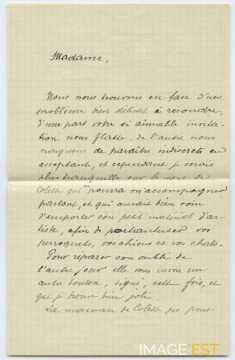 Madame,
Nous nous trouvons en face d'un
problème bien délicat à résoudre,
d'une part votre si aimable invita-
tion nous flatte, de l'autre nous
craignons de paraître indiscrets en
acceptant, et cependant je serais
plus tranquille sur le sort de
Colette qui pourra m'accompagner
partout, et qui aurait bien soin
d'emporter son petit matériel d'ar-
tiste, afin de portraicturer vos
perroquets, vos chiens et vos chats.
Pour réparer son oubli de
l'autre jour elle vous envoie un
autre bouton, signé, cette fois, et
que je trouve bien joli.
La marraine de Colette ne pour-
IMAGE'EST